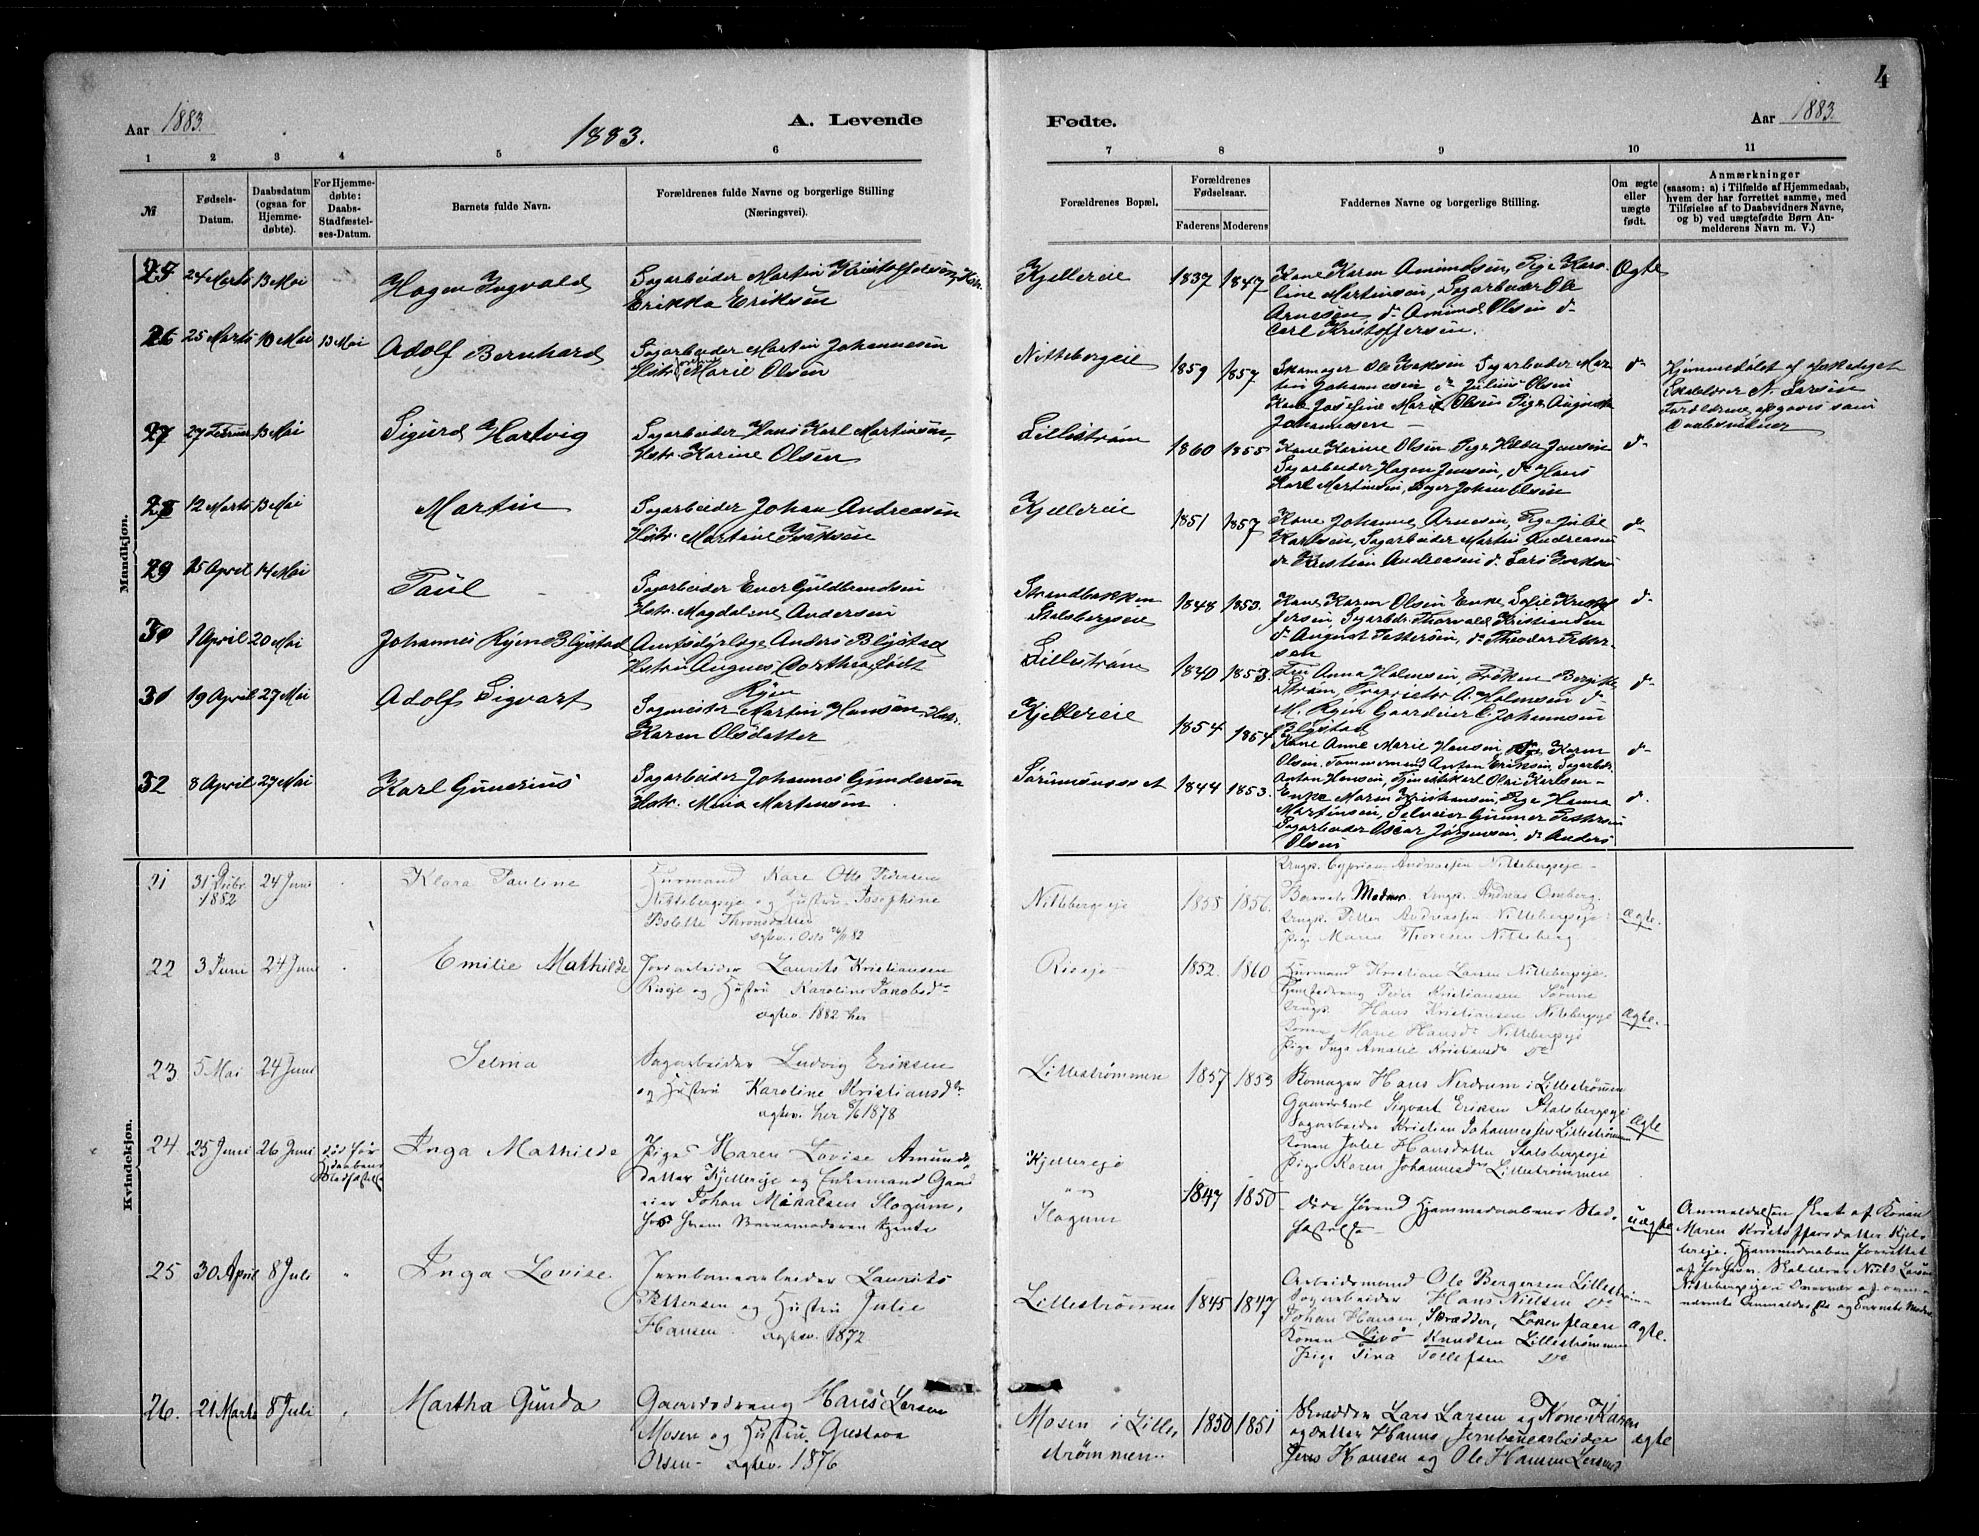 4
Aar 1883. 1883. A. Levende Fødte. Aar 1883.
1 2 3 4 5 6 7 8 9 10 11
№
Fødsels-
Datum.
Daabsdatum
(ogsaa for
Hjemme-
døbte).
For Hjemme-
døbte:
Daabs-
Stadfæstel-
ses-Datum.
Barnets fulde Navn.
Forældrenes fulde Navne og borgerlige Stilling
(Næringsvei).
Forældrenes Bopæl.
Forældrenes
Fødselsaar.
Faderens Moderens
Faddernes Navne og borgerlige Stilling.
Om ægte
eller
uægte
født.
Anmærkninger
(saasom: a) i Tilfælde af Hjemmedaab,
hvem der har forrettet samme, med
Tilføielse af to Daabsvidners Navne,
og b) ved uægtefødte Børn An-
melderens Navn m. V.)
Mandkjøn.
25 24 Marts 13 Mai Hagen Ingvald
Sagarbeider Martin Kristoffersen, Hstr.
Erikka Eriksen
Kjellereie 1837 1847
Kone Karen Amundsen, Pige Karo-
line Martinsen, Sagarbeider Ole
Arnesen d- Amund Olsen d-
Carl Kristoffersen.
Ægte
26 25 Marts 10 Mai 13 Mai Adolf Bernhard
Sagarbeider Martin Johannesen
Hstr. Marie Olsen
Nitteborgeie 1859 1857
Skomager Ole Isaksen Sagarbeider Mar-
tin Johannesen d- Julius Olsen
Kone Josefine Marie Olsen Pige Augusta
Johannesen
d-
Hjemmedøbt af
N. Larsen
Forældrene opgaves som
Daabsvidner
27 27 Februar 13 Mai Sigurd Hartvig
Sagarbeider Hans Karl Martinsen,
Hstr. Karine Olsen
Lillestrøm 1860 1855
Kone Karine Olsen Pige Hilda Jensen
Sagarbeider Hagen Jensen, d- Hans
Karl Martinsen, Johan Olsen
d-
28 12 Marts 13 Mai Martin
Sagarbeider Johan Andreasen
Hstr. Martine Isaksen
Kjellereie 1851 1857
Kone Johanne Arnesen, Pige Julie
Karlsen, Sagarbeider Martin Andreasen
d- Kristian Andreasen d- Lars Isaksen
d-
29 25 April 14 Mai Paul
Sagarbeider Ever Guldbrandsen
Hstr. Magdalene Andersen
Strandbakken
Stalsbergeie
1848 1853.
Kone Karen Olsen Enke, Sofie Kristof-
fersen, Sagarbdr Thorvald Kristiansen
d- August Pettersen, d- Theodor Petter-
sen
d-
30 1 April 20 Mai Johannes Ryen Blystad
Amtsdyrlæge Anders Blystad
Hstru Augnes Dorthea, født
Ryen
Lillestrøm 1840 1853.
Fru Anna Holmsen, Frøken Bergitte
Strøm, Proprietær A. Holmsen d-
M. Ryen Gaardeier C. Johannsen
Blystad
d-
31 19 April 27 Mai Adolf Sigvart
Sagmester Martin Hansen, Hstr.
Karen Olsdatter
Kjellereie 1854 1854
Kone Anne Marie Hansen, Pige Karen
Olsen, Tømmermand Anton Eriksen, Sagarbdr.
Anton Hansen, Tjenestekarl Ole Karlsen
d-
32 8 April 27 Mai Karl Gunerius
Sagarbeider Johannes Gundersen
Hstr. Mina Martinsen
Sørumsnesset 1844 1853.
Enke Maren Kristiansen, Pige Hanna
Martinsen, Selveier Gunner Pettersen
Sagarbeider Oscar Jørgensen, d- Anders
Olsen
d.
Kvindekjøn.
21 31 Debr. 1882 24 Juni Klara Pauline
Huusmand Karl Otto Pedersen
Nittebergseje og Hustru Josephine
Bolette Thronsdatter
ægtev. i Oslo 24/11 82
Nittebergseje 1858 1856.
Ungk. Cyprian Andreassen Nittebergseje-
Barnets Moder. Ungk. Andreas Omberg.
Ungk. Petter Andreassen Nittebergseje
Pige Maren Thoresen Nitteberg
ægte.
22 3 Juni 24 Juni Emilie Mathilde
Jordarbeider Laurits Kristiansen
Riseje og Hustru Karoline Jakobsdr
ægtev. 1882 her
Riseje 1852. 1860
Huusmand Kristian Larsen Nittebergseje.
Peder Kristiansen Sørum
Ungk. Hans Kristiansen Nittebergseje
Konen Marie Hansdr Nittebergseje
Pige Inga Amalie Kristiansdr Do
Ægte.
23 5 Mai 24 Juni Selma
Sagarbeider Ludvig Eriksen
og Hustru Karoline Kristiansdr
ægtev. her 1878
Lillestrømmen 1857 1853
Skomager Hans Nerdrum i Lillestrømmen
Gaardskarl Sigvart Eriksen Stalsbergseje
Sagarbeider Kristian Johannessen Lillestrømmen
Konen Julie Hansdatter Stalsbergseje
Pige Karen Johannesdr Lillestrømmen
Ægte
24 25 Juni 26 Juni død før Hjdaabens Stadfæstelse Inga Mathilde
Pige Maren Lovise Amunds-
datter Kjellereje og Enkemand Gaard-
eier Johan Mikalsen Slogum,
hos hvem Barnemoderen tjente
Kjellereje
Slogum
1847 1850
Døde førend Hjemmedaabens Stad-
fæstelse
uægte
Anmeldelsen skeet af Konen
Maren Kristoffersdatter Kjel-
lereje. Hjemmedaaben forrettet
af Niels Larsen
Nittebergseje i Overvær af oven-
nævnte Anmelderske og Barnets Moder
25 30 April 8 Juli Inga Lovise.
Jernbanearbeider Laurits
Pettersen og Hustru Julie
Hansen. ægtev. 1872
Lillestrømmen 1845 1847
Arbeidsmand Ole Bergersen Lillestrøm-
Sagarbeider Hans Nielsen Do
Johan Hansen, Skrædder,
Konen Livø Knudsen Lillestrømmen
Pige Tina Tollefsen Do
ægte.
26. 21 Marts 8 Juli Martha Gunda
Gaardsdreng Hans Larsen
Mosen og Hustru Gustava
Olsen- ægtev. 1876
Mosen i Lille-
strømmen.
1850 1851
Skrædder Lars Larsen og Kone Karen
Jernbanearbeider
Jens Hansen og Ole Hansen
ægte